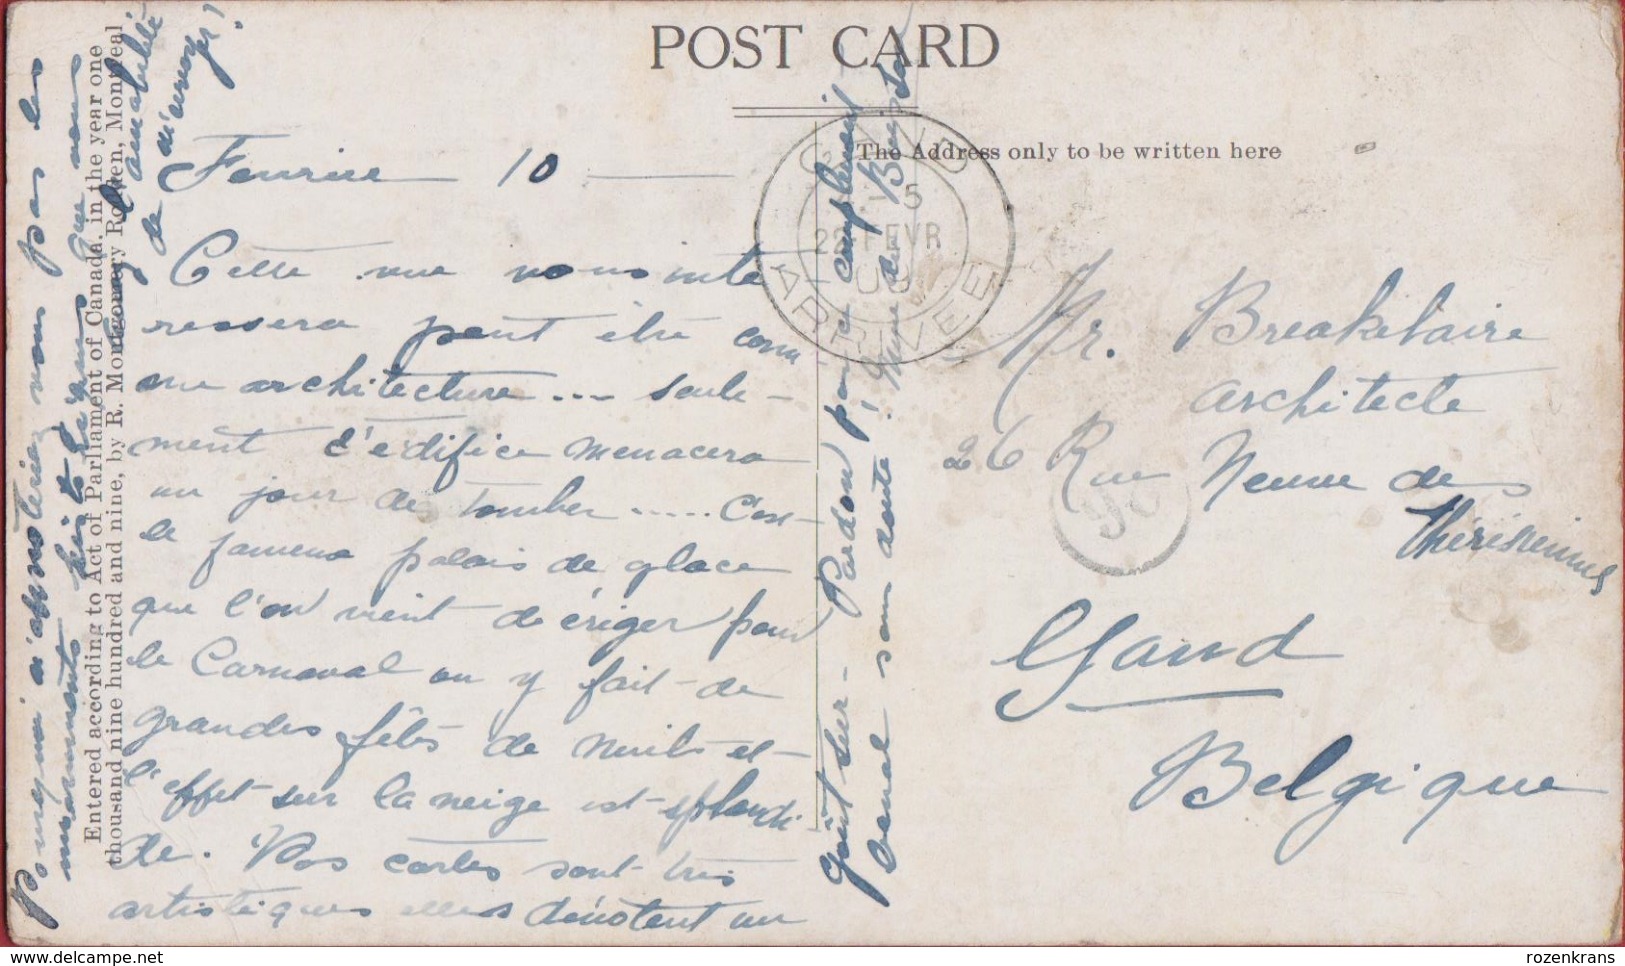 POST CARD
The Address only to be written here
GAND
5
22 FEVR
09
ARRIVEE
Fevrier 10
Cette vue vous inté
ressera peut être com
me architecture ... seule-
ment l'edifice menacera
un jour de tomber ..... C'est
le fameux palais de glace
que l'on vient de ériger pour
le Carnaval on y fait de
grandes fêtes de nuits et
l'effet sur la neige est splendi-
de. Vos cartes sont très
artistiques elles dénotent un
goût sur - Pardon pour compliment
banal sans doute!
Mr. Breakelaire
architecte
26 Rue Neuve des
Thérésiennes
Gand
Belgique
Pourquoi n'apprécieriez vous pas les
monuments historiques que vous
amabilité
de m'envoyer!
Entered according to Act of Parliament of Canada, in the year one
thousand nine hundred and nine, by R. Montgomery Rodden, Montreal
rozenkrans
delcampe.net